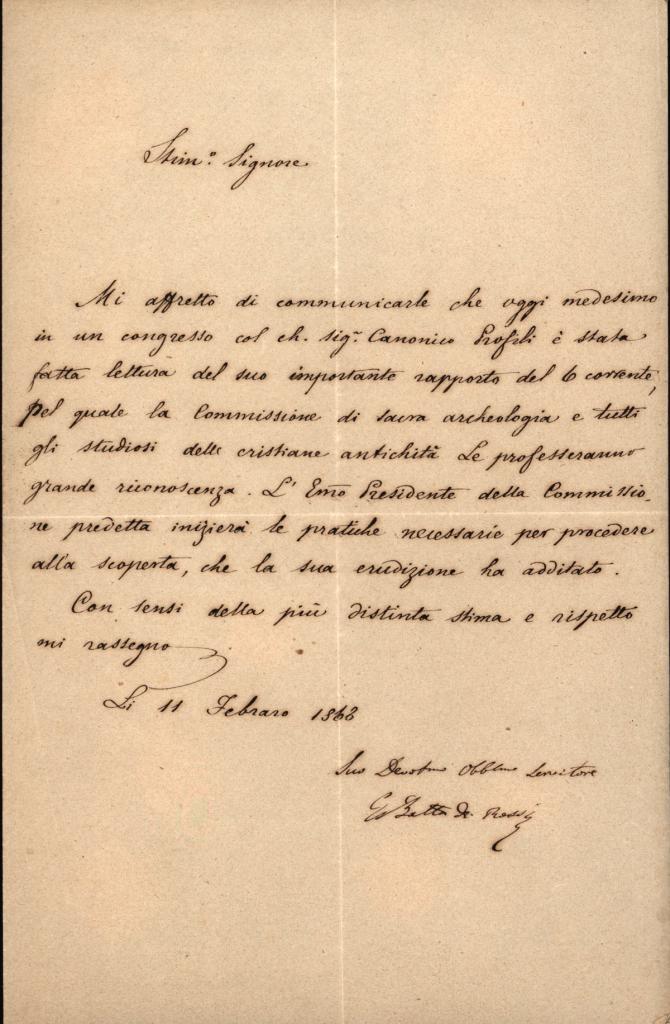 Stim.º Signore
Mi affretto di communicarle che oggi medesimo
in un congresso col ch. sig.r Canonico Profili è stata
fatta lettura del suo importante rapporto del 6 corrente,
pel quale la Commissione di sacra archeologia e tutti
gli studiosi delle cristiane antichità Le professeranno
grande riconoscenza. L' Emo Presidente della Commissio-
ne predetta inizierà le pratiche necessarie per procedere
alla scoperta, che la sua erudizione ha additato.
Con sensi della più distinta stima e rispetto
mi rassegno
Li 11 Febraro 1868
Suo Devotmo Obblmo Servitore
G Batta de Rossi